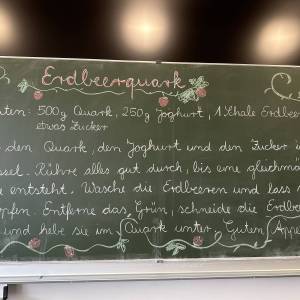 Erdbeerquark
ten: 500g Quark, 250g Joghurt, 1 Schale Erdbeer
etwas Zucker
den Quark, den Joghurt und den Zucker i
ssel. Rühre alles gut durch, bis eine gleichmä
e entsteht. Wasche die Erdbeeren und lass
pfen. Entferne das Grün, schneide die Erdbe
und hebe sie im Quark unter. Guten Appe